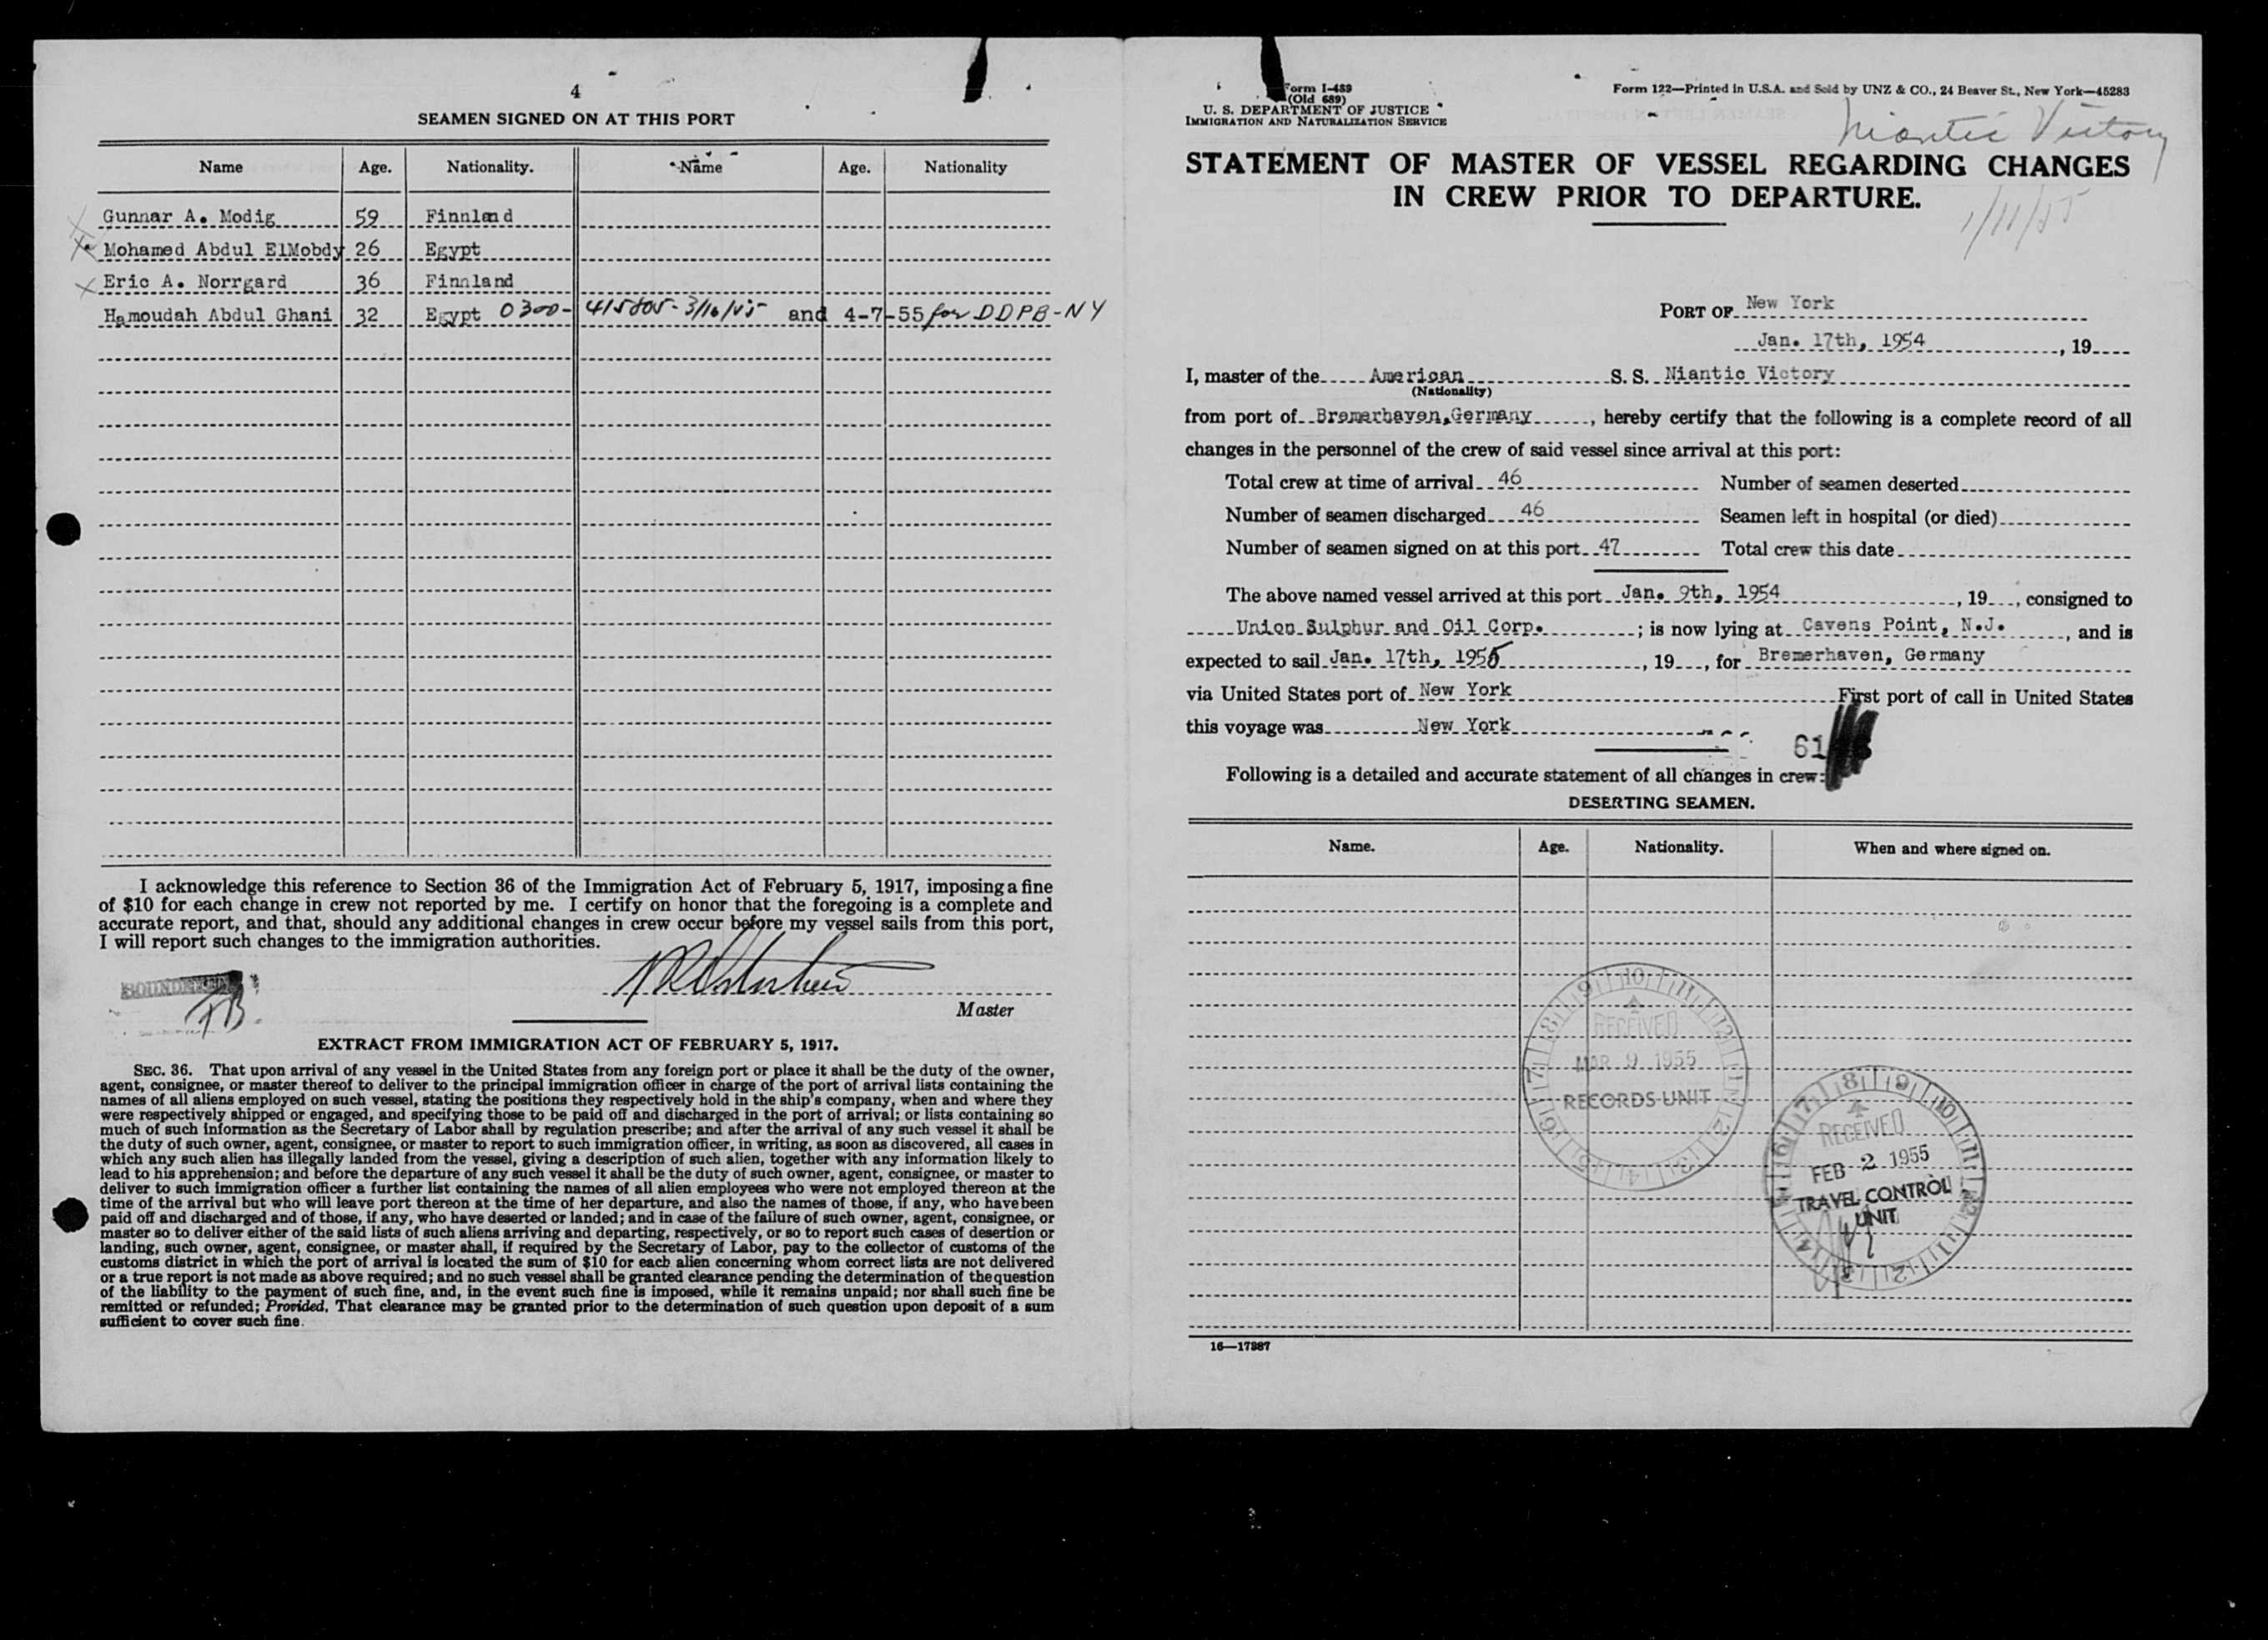 4
SEAMEN SIGNED ON AT THIS PORT
Name Age. Nationality. Name Age. Nationality
Gunnar A. Modig 59 Finnland
Mohamed Abdul ElMobdy 26 Egypt
Eric A. Norrgard 36 Finnland
Hamoudah Abdul Ghani 32 Egypt 0300- 415805- 3/16/55 and 4-7-55 for DDPB-NY
I acknowledge this reference to Section 36 of the Immigration Act of February 5, 1917, imposing a fine
of $10 for each change in crew not reported by me. I certify on honor that the foregoing is a complete and
accurate report, and that, should any additional changes in crew occur before my vessel sails from this port,
I will report such changes to the immigration authorities.
Master
EXTRACT FROM IMMIGRATION ACT OF FEBRUARY 5, 1917.
SEC. 36. That upon arrival of any vessel in the United States from any foreign port or place it shall be the duty of the owner,
agent, consignee, or master thereof to deliver to the principal immigration officer in charge of the port of arrival lists containing the
names of all aliens employed on such vessel, stating the positions they respectively hold in the ship's company, when and where they
were respectively shipped or engaged, and specifying those to be paid off and discharged in the port of arrival; or lists containing so
much of such information as the Secretary of Labor shall by regulation prescribe; and after the arrival of any such vessel it shall be
the duty of such owner, agent, consignee, or master to report to such immigration officer, in writing, as soon as discovered, all cases in
which any such alien has illegally landed from the vessel, giving a description of such alien, together with any information likely to
lead to his apprehension; and before the departure of any such vessel it shall be the duty of such owner, agent, consignee, or master to
deliver to such immigration officer a further list containing the names of all alien employees who were not employed thereon at the
time of the arrival but who will leave port thereon at the time of her departure, and also the names of those, if any, who have been
paid off and discharged and of those, if any, who have deserted or landed; and in case of the failure of such owner, agent, consignee, or
master so to deliver either of the said lists of such aliens arriving and departing, respectively, or so to report such cases of desertion or
landing, such owner, agent, consignee, or master shall, if required by the Secretary of Labor, pay to the collector of customs of the
customs district in which the port of arrival is located the sum of $10 for each alien concerning whom correct lists are not delivered
or a true report is not made as above required; and no such vessel shall be granted clearance pending the determination of the question
of the liability to the payment of such fine, and, in the event such fine is imposed, while it remains unpaid; nor shall such fine be
remitted or refunded; Provided, That clearance may be granted prior to the determination of such question upon deposit of a sum
sufficient to cover such fine.
Form I-489
(Old 689)
U. S. DEPARTMENT OF JUSTICE
IMMIGRATION AND NATURALIZATION SERVICE
Form 122—Printed in U.S.A. and Sold by UNZ & CO., 24 Beaver St., New York—45283
Niantic Victory
STATEMENT OF MASTER OF VESSEL REGARDING CHANGES
IN CREW PRIOR TO DEPARTURE.
1/11/55
PORT OF New York
Jan. 17th, 1954, 19
I, master of the American S. S. Niantic Victory
(Nationality)
from port of Bremerhaven,Germany, hereby certify that the following is a complete record of all
changes in the personnel of the crew of said vessel since arrival at this port:
Total crew at time of arrival 46 Number of seamen deserted
Number of seamen discharged 46 Seamen left in hospital (or died)
Number of seamen signed on at this port 47 Total crew this date
The above named vessel arrived at this port Jan. 9th, 1954, 19, consigned to
Union Sulphur and Oil Corp.; is now lying at Cavens Point, N.J., and is
expected to sail Jan. 17th, 1955, 19, for Bremerhaven, Germany
via United States port of New York First port of call in United States
this voyage was New York
61
Following is a detailed and accurate statement of all changes in crew:
DESERTING SEAMEN.
Name. Age. Nationality. When and where signed on.
RECEIVED
MAR 9 1955
RECORDS UNIT
RECEIVED
FEB 2 1955
TRAVEL CONTROL
UNIT
16—17387